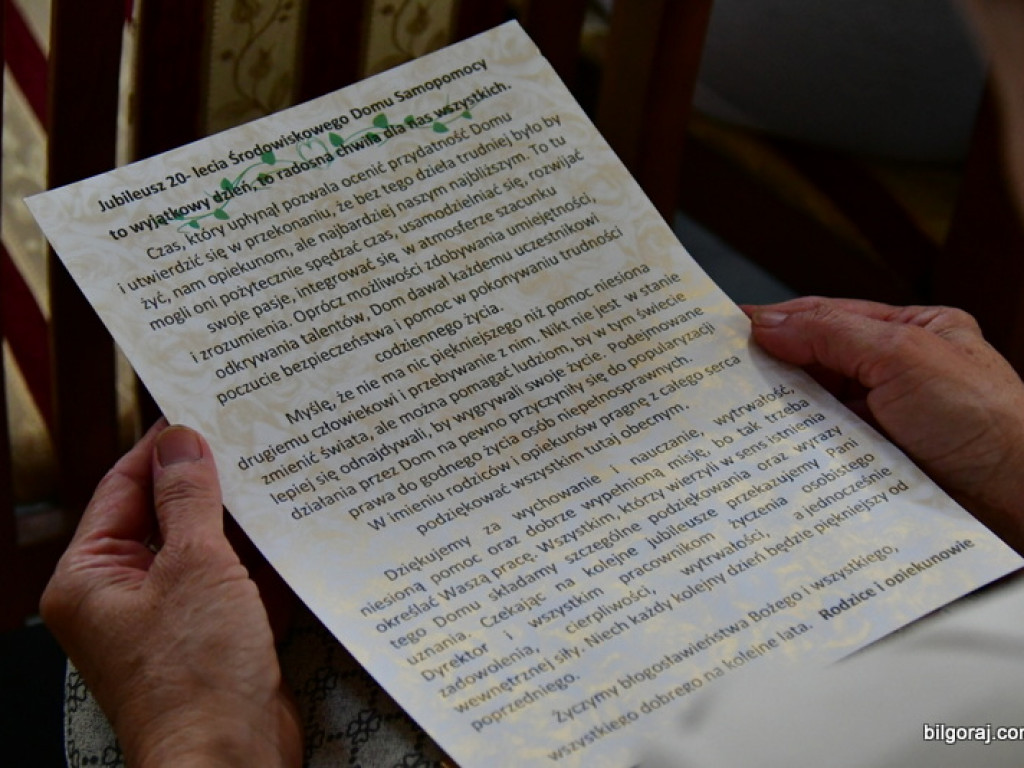 Jubileusz 20- lecia Środowiskowego Domu Samopomocy
to wyjątkowy dzień, to radosna chwila dla nas wszystkich.
Czas, który upłynął pozwala ocenić przydatność Domu
i utwierdzić się w przekonaniu, że bez tego dzieła trudniej było by
żyć, nam opiekunom, ale najbardziej naszym najbliższym. To tu
mogli oni pożytecznie spędzać czas, usamodzielniać się, rozwijać
swoje pasje, integrować się, w atmosferze szacunku
i zrozumienia. Oprócz możliwości zdobywania umiejętności,
odkrywania talentów, Dom dawał każdemu uczestnikowi
poczucie bezpieczeństwa i pomoc w pokonywaniu trudności
codziennego życia.
Myślę, że nie ma nic piękniejszego niż pomoc niesiona
drugiemu człowiekowi i przebywanie z nim. Nikt nie jest w stanie
zmienić świata, ale można pomagać ludziom, by w tym świecie
lepiej się odnajdywali, by wygrywali swoje życie. Podejmowane
działania przez Dom na pewno przyczyniły się do popularyzacji
prawa do godnego życia osób niepełnosprawnych.
W imieniu rodziców i opiekunów pragnę z całego serca
podziękować wszystkim tutaj obecnym.
Dziękujemy za wychowanie i nauczanie, wytrwałość,
niesioną pomoc oraz dobrze wypełnioną misję, bo tak trzeba
określać Waszą pracę. Wszystkim, którzy wierzyli w sens istnienia
tego Domu składamy szczególne podziękowanie oraz wyrazy
uznania. Czekając na kolejne jubileusze przekazujemy Pani
Dyrektor i wszystkim pracownikom życzenia osobistego
zadowolenia, cierpliwości, wytrwałości, a jednocześnie
wewnętrznej siły. Niech każdy kolejny dzień będzie piękniejszy od
poprzedniego.
Życzymy błogosławieństwa Bożego i wszystkiego,
wszystkiego dobrego na kolejne lata. Rodzice i opiekunowie
bilgoraj.com